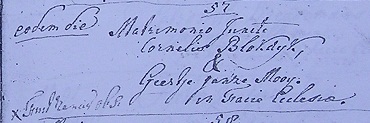 57
eodem die Matrimonio Juncti
Cornelis Blokdyk,
&
Geertje Janze Mooy.
in Facie Eclesiæ.
58